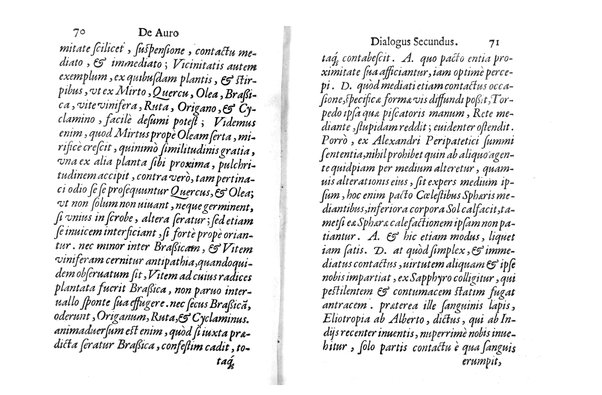 70 De Auro
mitate scilicet, suspensione, contactu me-
diato, & immediato; Vicinitatis autem
exemplum, ex quibusdam plantis, & stir-
pibus, ut ex Mirto, Quercu, Olea, Brassi-
ca, vite vinifera, Ruta, Origano, & Cy-
clamino, facilè desumi potest; Videmus
enim, quod Mirtus propè Oleam serta, mi-
rificè crescit, quinimò similitudinis gratia,
vna ex alia planta sibi proxima, pulchri-
tudinem accipit, contra verò, tam pertina-
ci odio se se prosequuntur Quercus, & Olea;
vt non solum non uiuant, neque germinent,
si vnius in scrobe, altera seratur; sed etiam
se inuicem interficiant, si fortè propè orian-
tur. nec minor inter Brassicam, & Vitem
viniferam cernitur antipathia, quandoqui-
dem obseruatum sit, Vitem ad cuius radices
plantata fuerit Brassica, non paruo inter-
uallo sponte sua affugere. nec secus Brassicā
oderunt, Origanum, Ruta, & Cyclaminus.
animaduersum est enim, quòd si iuxta præ-
dicta seratur Brassica, confestim cadit, to-
taq́;
Dialogus Secundus. 71
taq́; contabescit. A. quo pacto entia pro-
ximitate sua afficiantur, iam optimè perce-
pi. D. quòd mediati etiam contactus occa-
sione, specifica forma vis diffundi possit, Tor-
pedo ipsa qua piscatoris manum, Rete me-
diante, stupidam reddit; euidenter ostendit.
Porrò, ex Alexandri Peripatetici summi
sententia, nihil prohibet quin ab aliquo agen-
te quidpiam per medium alteretur, quam-
uis alterationis eius, sit expers medium ip-
sum, hoc enim pacto Cœlestibus Sphæris me-
diantibus, inferiora corpora Sol calfacit, ta-
metsi eæ Sphæræ calefactionem ipsam non pa-
tiantur. A. & hic etiam modus, liquet
iam satis. D. at quòd simplex, & imme-
diatus contactus, uirtutem aliquam & ipse
nobis impartiat, ex Sapphyro colligitur, qui
pestilentem & contumacem statim fugat
antracem. præterea ille sanguinis lapis,
Eliotropia ab Alberto, dictus, qui ab In-
dijs recenter inuentis, nuperrimè nobis inue-
hitur, solo partis contactu è qua sanguis
erumpit,